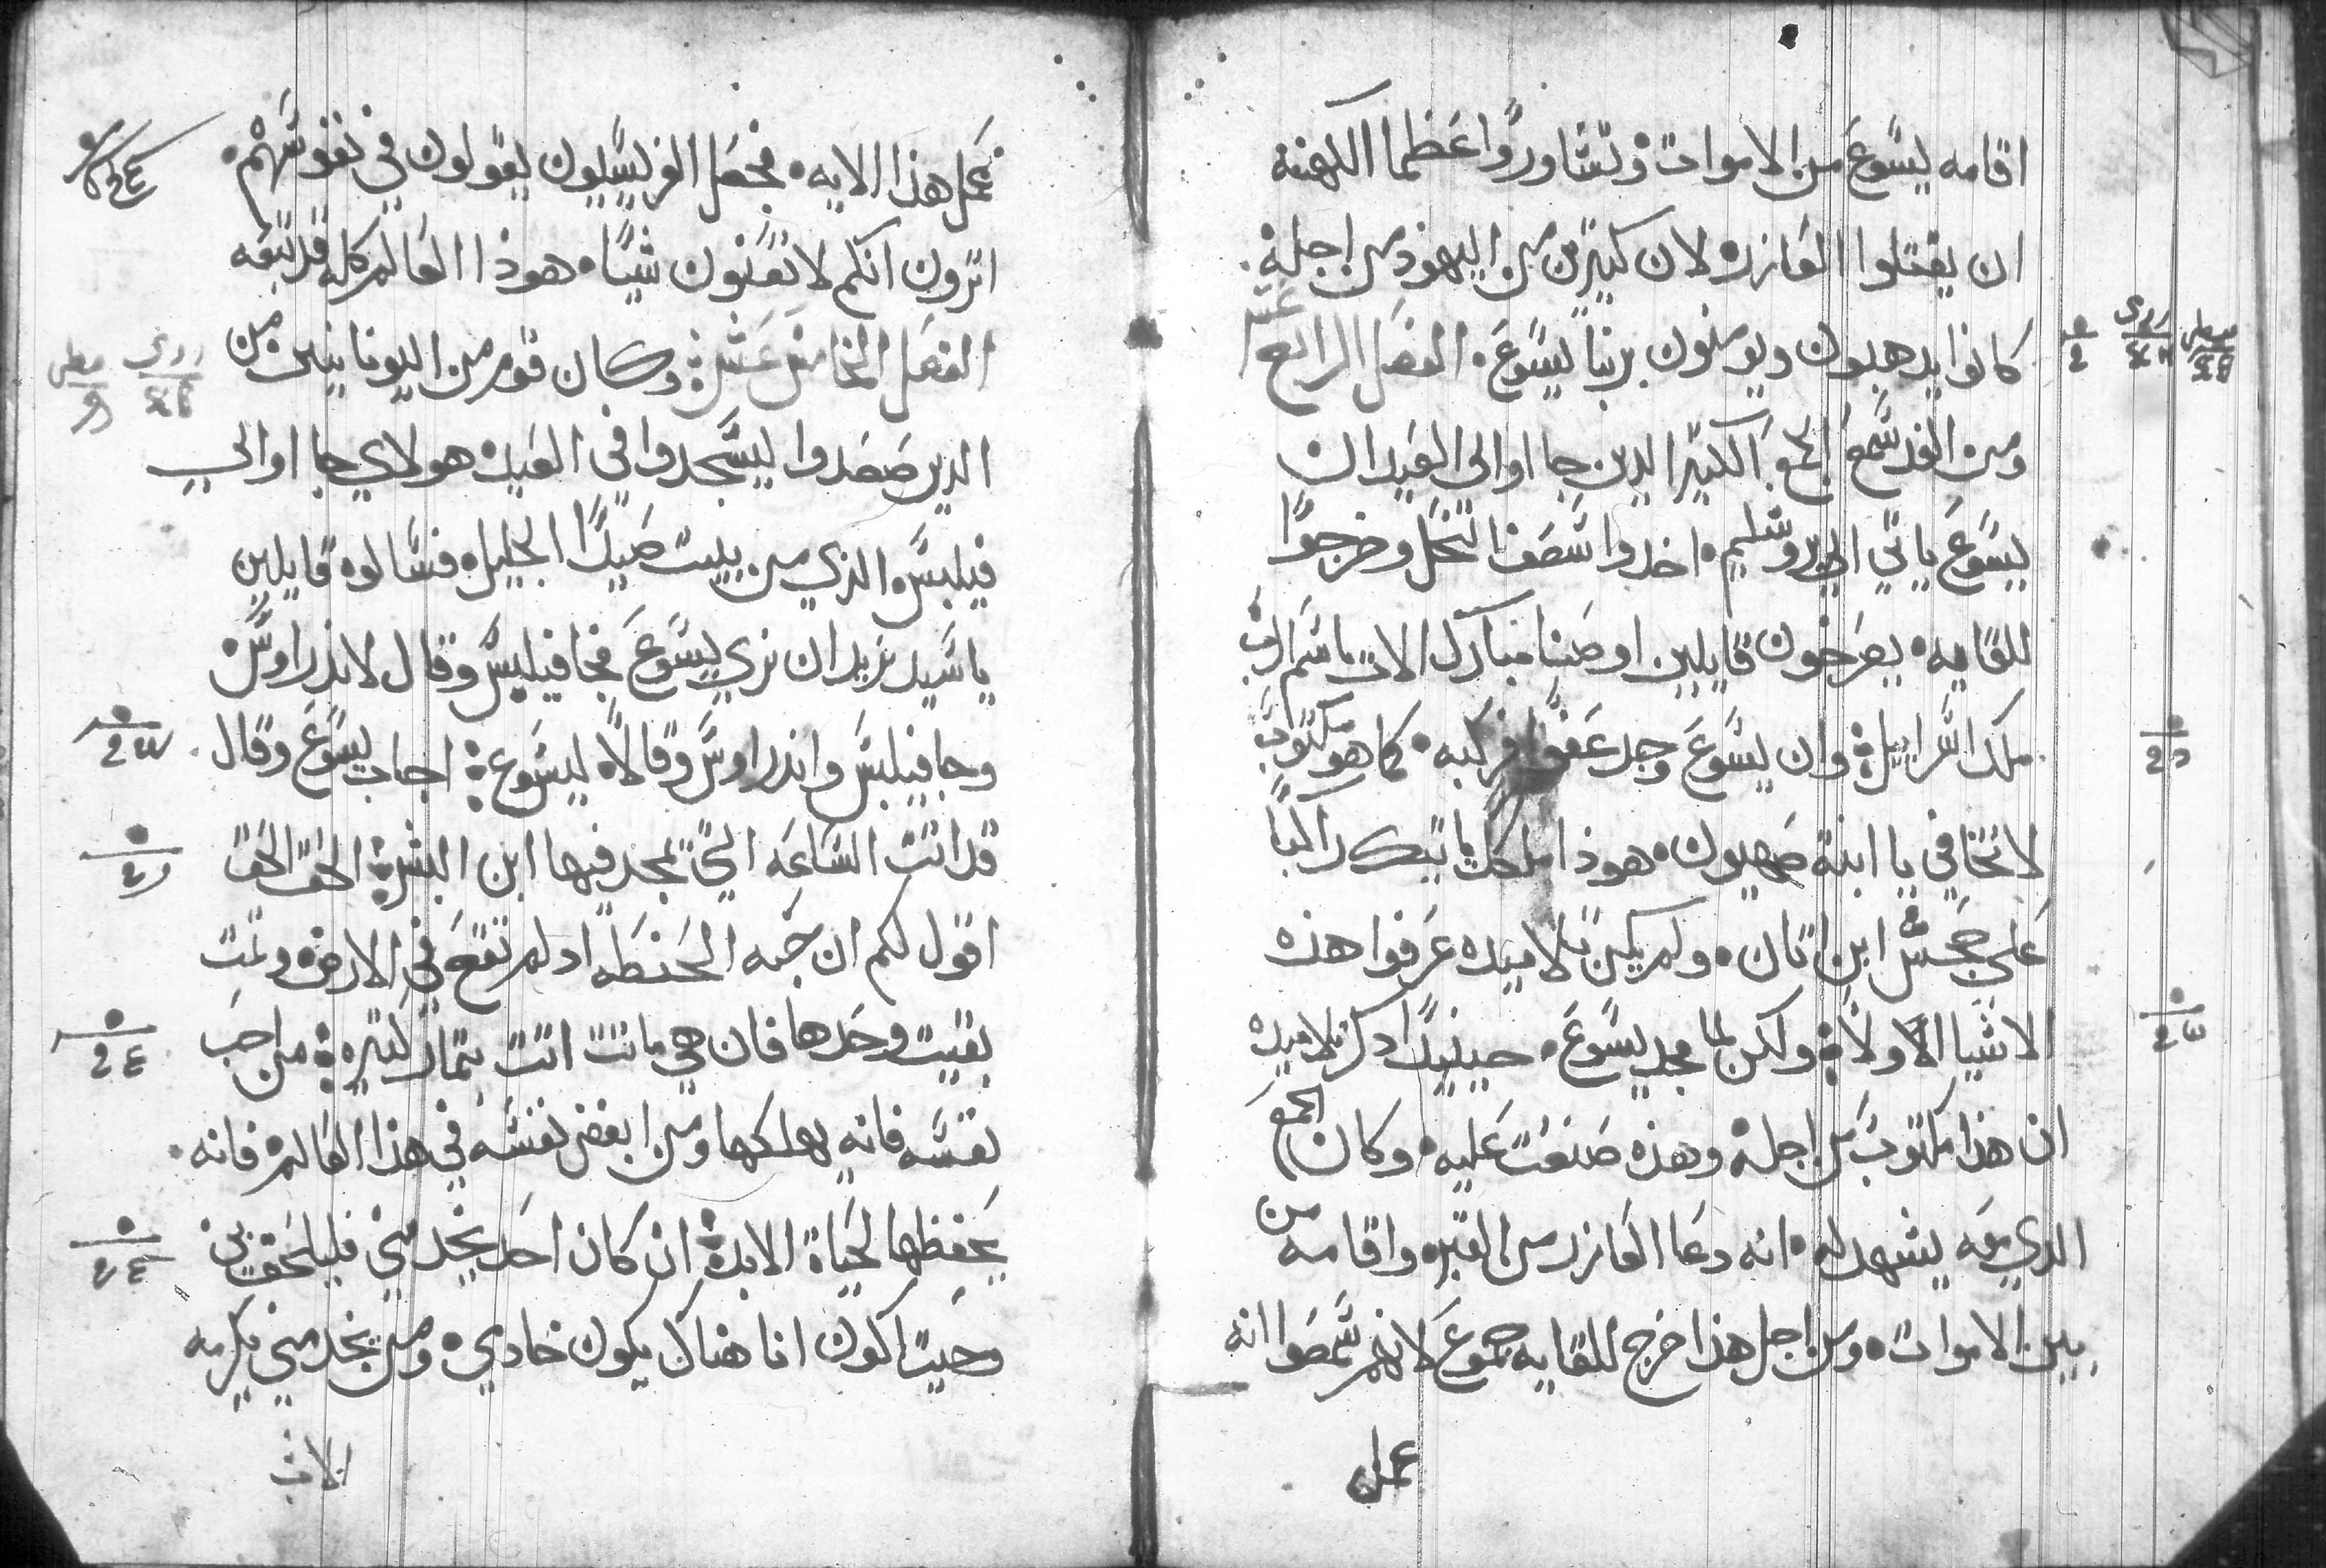 اقامه يسوع من الاموات وتشاوروا عظما الكهنه
ان يقتلوا العازر لان كتيرين من اليهود من اجله
كانوا يدهبون ويومنون بربنا يسوع الفصل الرابع عشر
ومن الغد سمع الجمع الكتير الدين جااوا الى العيد ان
يسوع ياتي الي يروشليم اخدوا سعف النخل وخرجوا
للقايه يصرخون قايلين اوصنا مبارك الات باسم الرب
ملك اسراييل وان يسوع وجد عفوا فركبه كما هو مكتوب
لا تخافي يا ابنة صهيون هوذا ملكك ياتيك راكبا
على جحش ابن اتان ولم يكن تلاميده عرفوا هذه
الاشيا الاولاه ولكن لما مجد يسوع حينيدا دكر تلاميده
ان هذا مكتوب من اجله وهذه صنعت عليه وكان الجمع
الدي معه يشهد له انه دعا العازر من القبر واقامه من
بين الاموات ومن اجل هذا خرج للقايه جموع لانهم سمعوا انه
عمل
عمل هذا الايه فجعل الفريسيون يقولون في نفوسهم
اترون انكم لا تغنون شيا هوذا العالم كله قد تبعه
الفصل الخامس عشر وكان قوم من اليونانيين من
الدين صعدوا ليسجدوا في العيد هولاي جااوا الي
فيلبس الذي من بيت صيدا الجليل فسالوه قايلين
ياسيد نريد ان نري يسوع فجا فيلبس وقال لاندراوس
وجا فيلبس واندراوس وقالاه ليسوع اجاب يسوع وقال
قد اتت الساعه التي يمجد فيها ابن البشر الحق الحق
اقول لكم ان حبه الحنطه اد لم تقع في الارض وتمت
بقيت وحدها فان هي ماتت اتت بتمار كتيره من احب
نفسه فانه يهلكها ومن ابغض نفسه في هذا العالم فانه
يحفظها لحياة الابد ان كان احد يخدمني فليلحق بي
وحيت اكون انا هناك يكون خادمي ومن يخدمني يكرمه
الاب